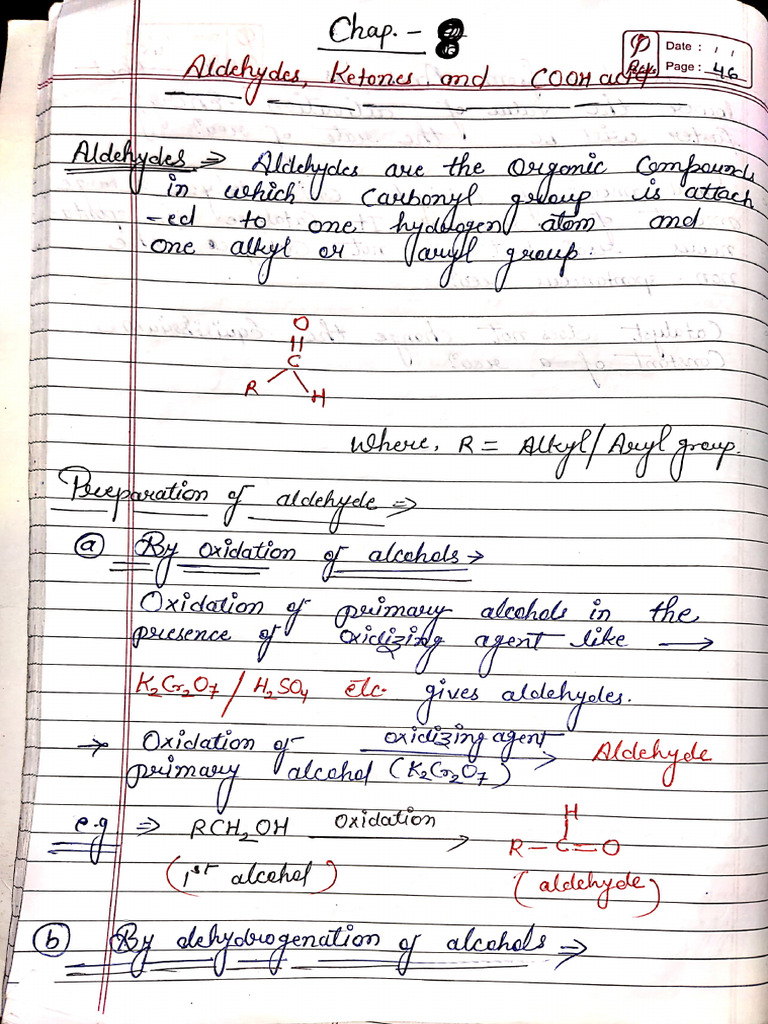 Chap. - 8
Date :
Page : 46
Aldehydes, Ketones and COOH acid
Aldehydes ⇒ Aldehydes are the Organic Compounds
in which Carbonyl group is attach
-ed to one hydrogen atom and
one alkyl or aryl group.
O
||
C
R H
Where, R = Alkyl/Aryl group.
Preparation of aldehyde ⇒
(a) By oxidation of alcohols →
Oxidation of primary alcohols in the
presence of oxidizing agent like →
K₂Cr₂O₇ / H₂SO₄ etc. gives aldehydes.
→ Oxidation of oxidizing agent Aldehyde
primary alcohol (K₂Cr₂O₇) →
e.g ⇒ RCH₂OH Oxidation → R–C=O
H
(1st alcohol) (aldehyde)
(b) By dehydrogenation of alcohols ⇒